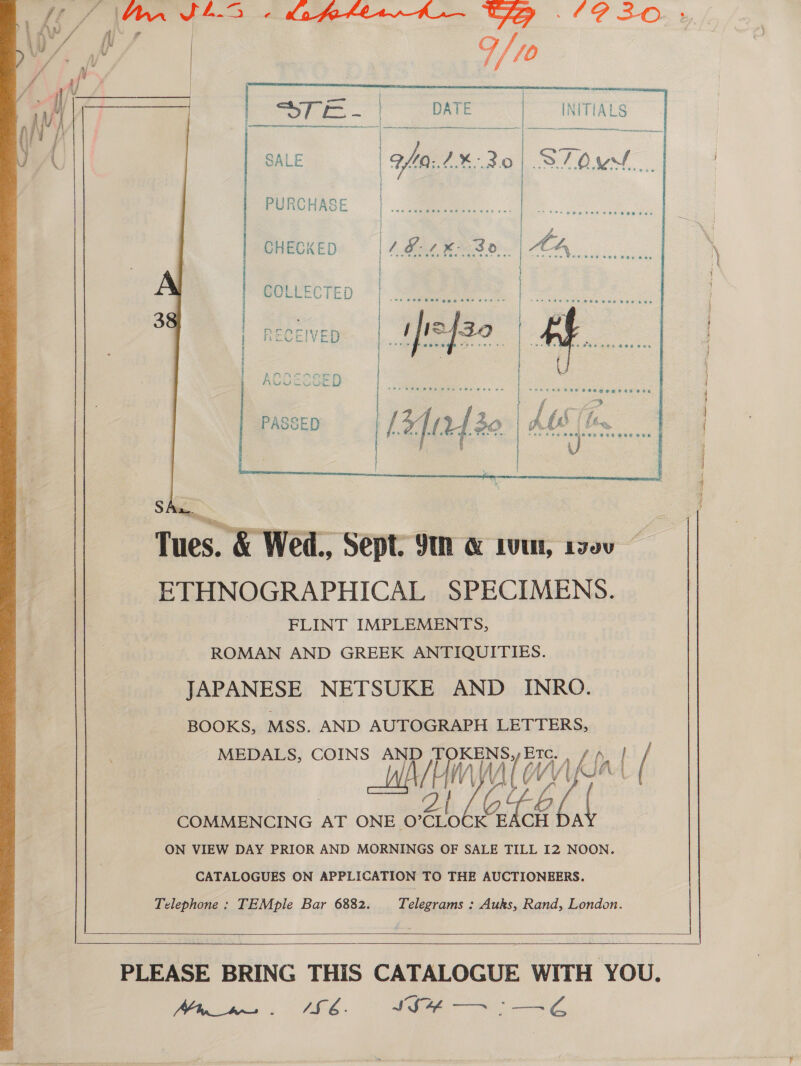 September 9/10 . 1930
9/10
STE- DATE INITIALS
SALE 9/10.IX.30 STOW
PURCHASE
CHECKED 18.IX.30
COLLECTED
RECEIVED 1/12/30
ACCESSED
PASSED 13/12/30
A
38
SA
Tues. & Wed., Sept. 9th & 10th, 1930
ETHNOGRAPHICAL SPECIMENS.
FLINT IMPLEMENTS,
ROMAN AND GREEK ANTIQUITIES.
JAPANESE NETSUKE AND INRO.
BOOKS, MSS. AND AUTOGRAPH LETTERS,
MEDALS, COINS AND TOKENS, ETC.
WA/HMM
COMMENCING AT ONE O'CLOCK EACH DAY
ON VIEW DAY PRIOR AND MORNINGS OF SALE TILL 12 NOON.
CATALOGUES ON APPLICATION TO THE AUCTIONEERS.
Telephone : TEMple Bar 6882. Telegrams : Auks, Rand, London.
PLEASE BRING THIS CATALOGUE WITH YOU.
156.